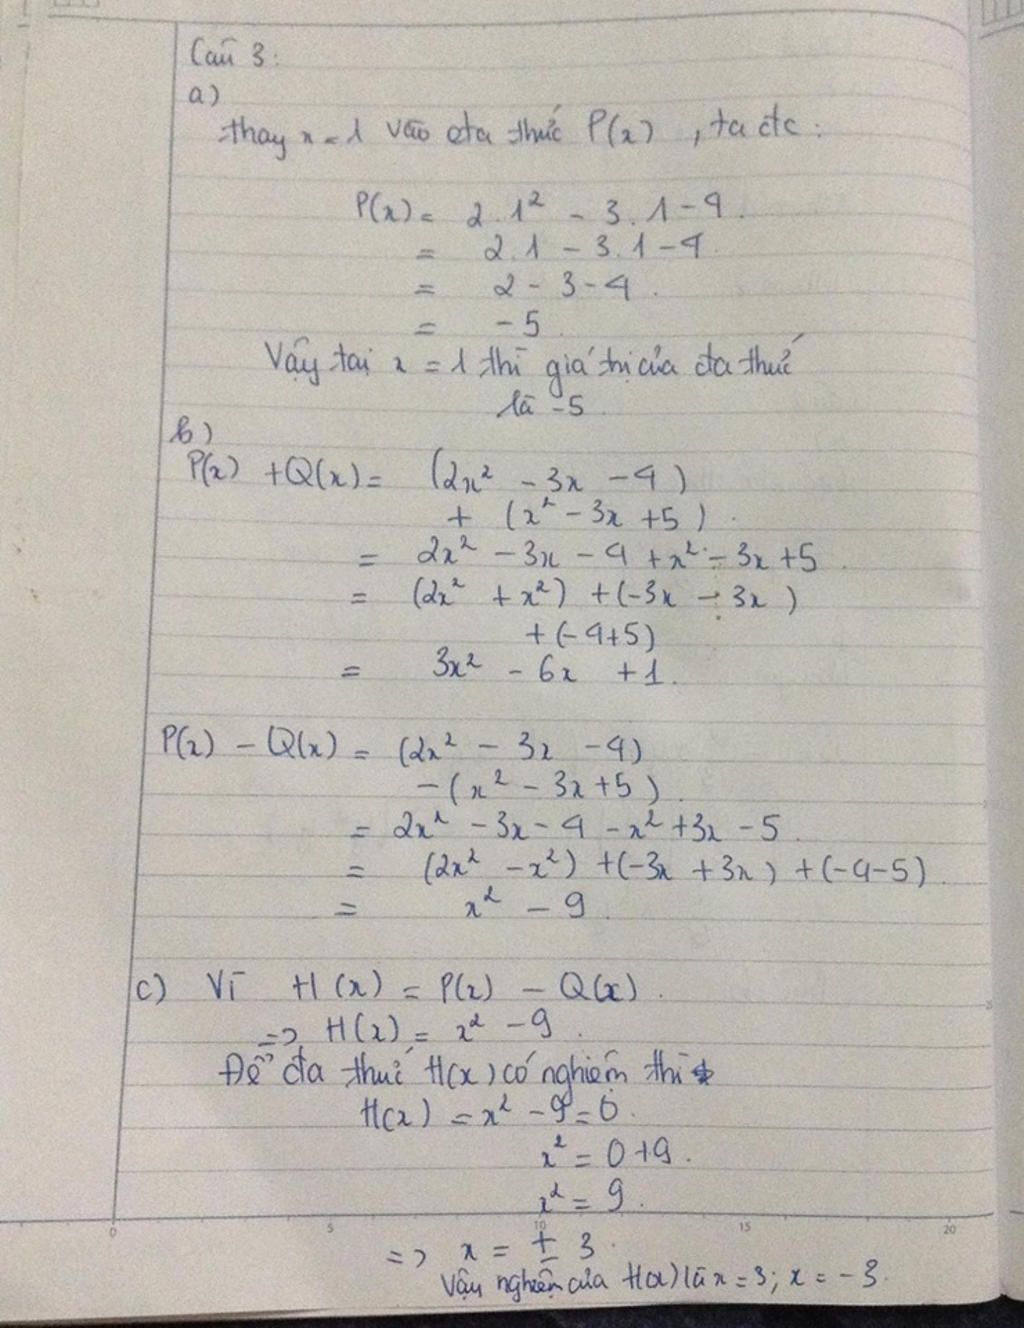 Câu 3:
a)
thay x = 1 vào đa thức P(x), ta đc:
P(x) = 2.1² - 3.1 - 4.
= 2.1 - 3.1 - 4
= 2 - 3 - 4.
= -5.
Vậy tại x = 1 thì giá trị của đa thức
là -5.
b)
P(x) + Q(x) = (2x² - 3x - 4)
+ (x² - 3x + 5).
= 2x² - 3x - 4 + x² - 3x + 5.
= (2x² + x²) + (-3x - 3x)
+ (-4+5)
= 3x² - 6x + 1.
P(x) - Q(x) = (2x² - 3x - 4)
- (x² - 3x + 5).
= 2x² - 3x - 4 - x² + 3x - 5.
= (2x² - x²) + (-3x + 3x) + (-4-5).
= x² - 9.
c) Vì H(x) = P(x) - Q(x).
=> H(x) = x² - 9.
Để đa thức H(x) có nghiệm thì
H(x) = x² - 9 = 0.
x² = 0 + 9.
x² = 9.
0 5 10 15 20
=> x = ± 3.
Vậy nghiệm của H(x) là x = 3; x = -3.